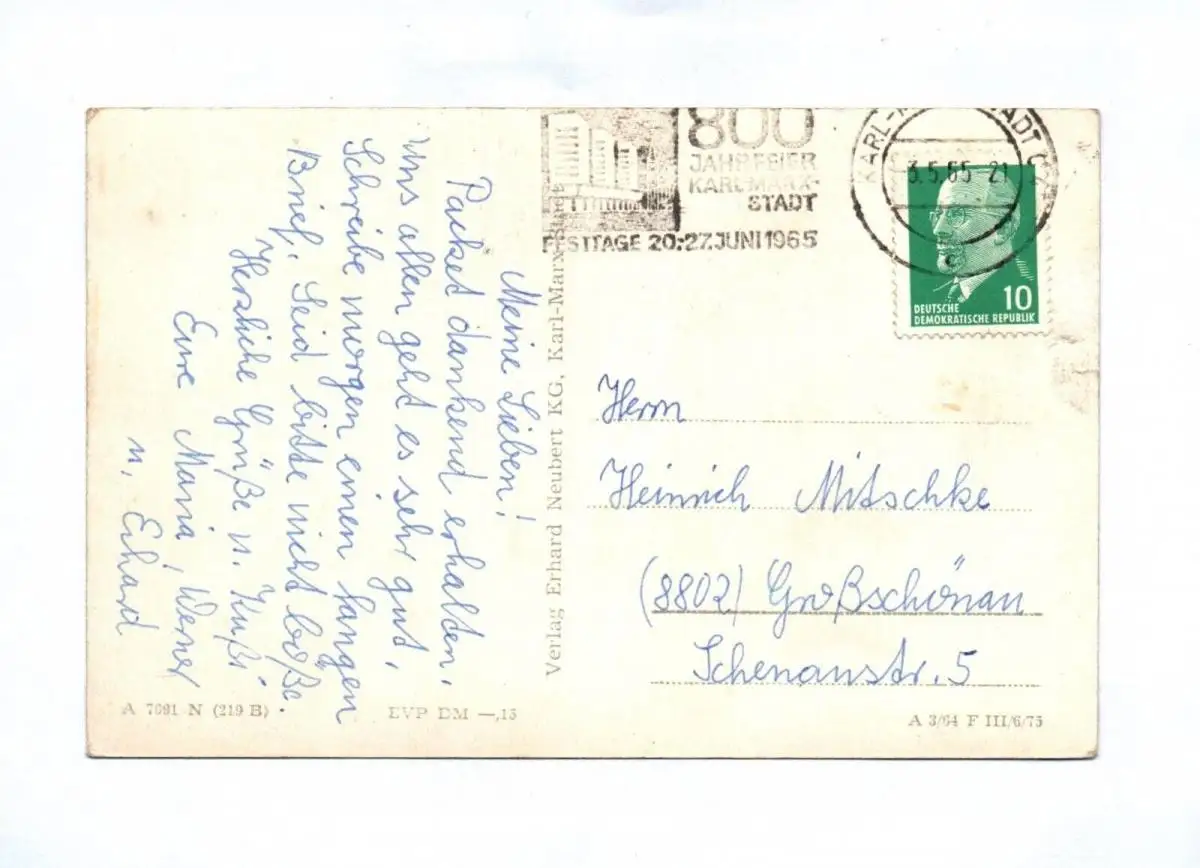 Meine Lieben!
Packet dankend erhalten,
uns allen geht es sehr gut,
Schreibe morgen einen langen
Brief. Seid bitte nicht böße.
Herzliche Grüße u. Kußi
Eure Maria, Werner
u. Erhard
Verlag Erhard Neubert KG, Karl-Marx-Stadt
800
JAHRFEIER
KARL-MARX-
STADT
FESTTAGE 20:-27. JUNI 1965
3.5.65 21
10
DEUTSCHE
DEMOKRATISCHE REPUBLIK
Herrn
Heinrich Mitschke
(8802) Großschönau
Schenaustr. 5
A 7091 N (219 B)
EVP DM —,15
A 3/64 F III/6/75